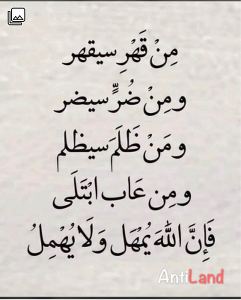 مِنْ قَهْرِ سيقهر
ومِنْ ضُرٍّ سيضر
ومَنْ ظَلَمَ سيظلم
ومِن عَاب ابْتَلَى
فَإِنَّ اللّٰهَ يُمْهَل وَلَا يُهْمِلُ
AntiLand